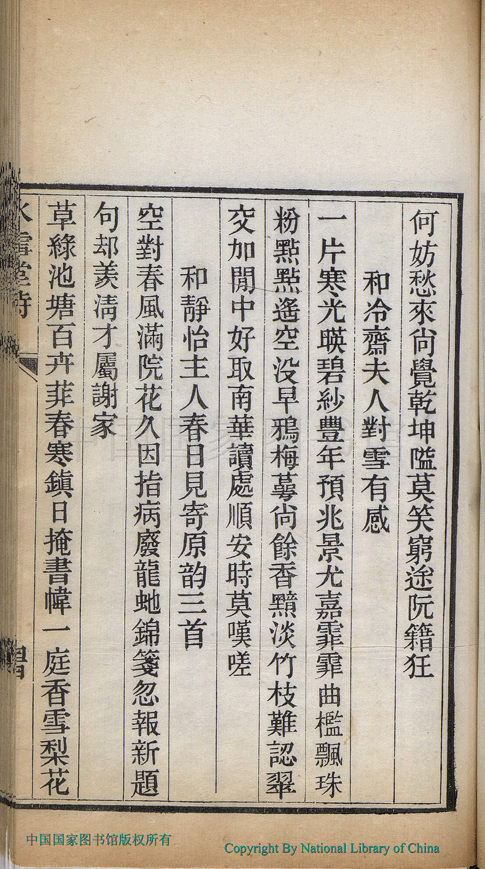 何妨愁來尙覺乾坤隘莫笑窮途阮籍狂
和冷齋夫人對雪有感
一片寒光暎碧紗豐年預兆景尤嘉霏霏曲檻飄珠
粉點點遙空没早鴉梅萼尙餘香黯淡竹枝難認翠
交加閒中好取南華讀處順安時莫嘆嗟
和靜怡主人春日見寄原韵三首
空對春風滿院花久因指病廢龍虵錦箋忽報新題
句却羨淸才屬謝家
草綠池塘百卉菲春寒鎭日掩書幃一庭香雪梨花
中国国家图书馆版权所有
Copyright By National Library of China